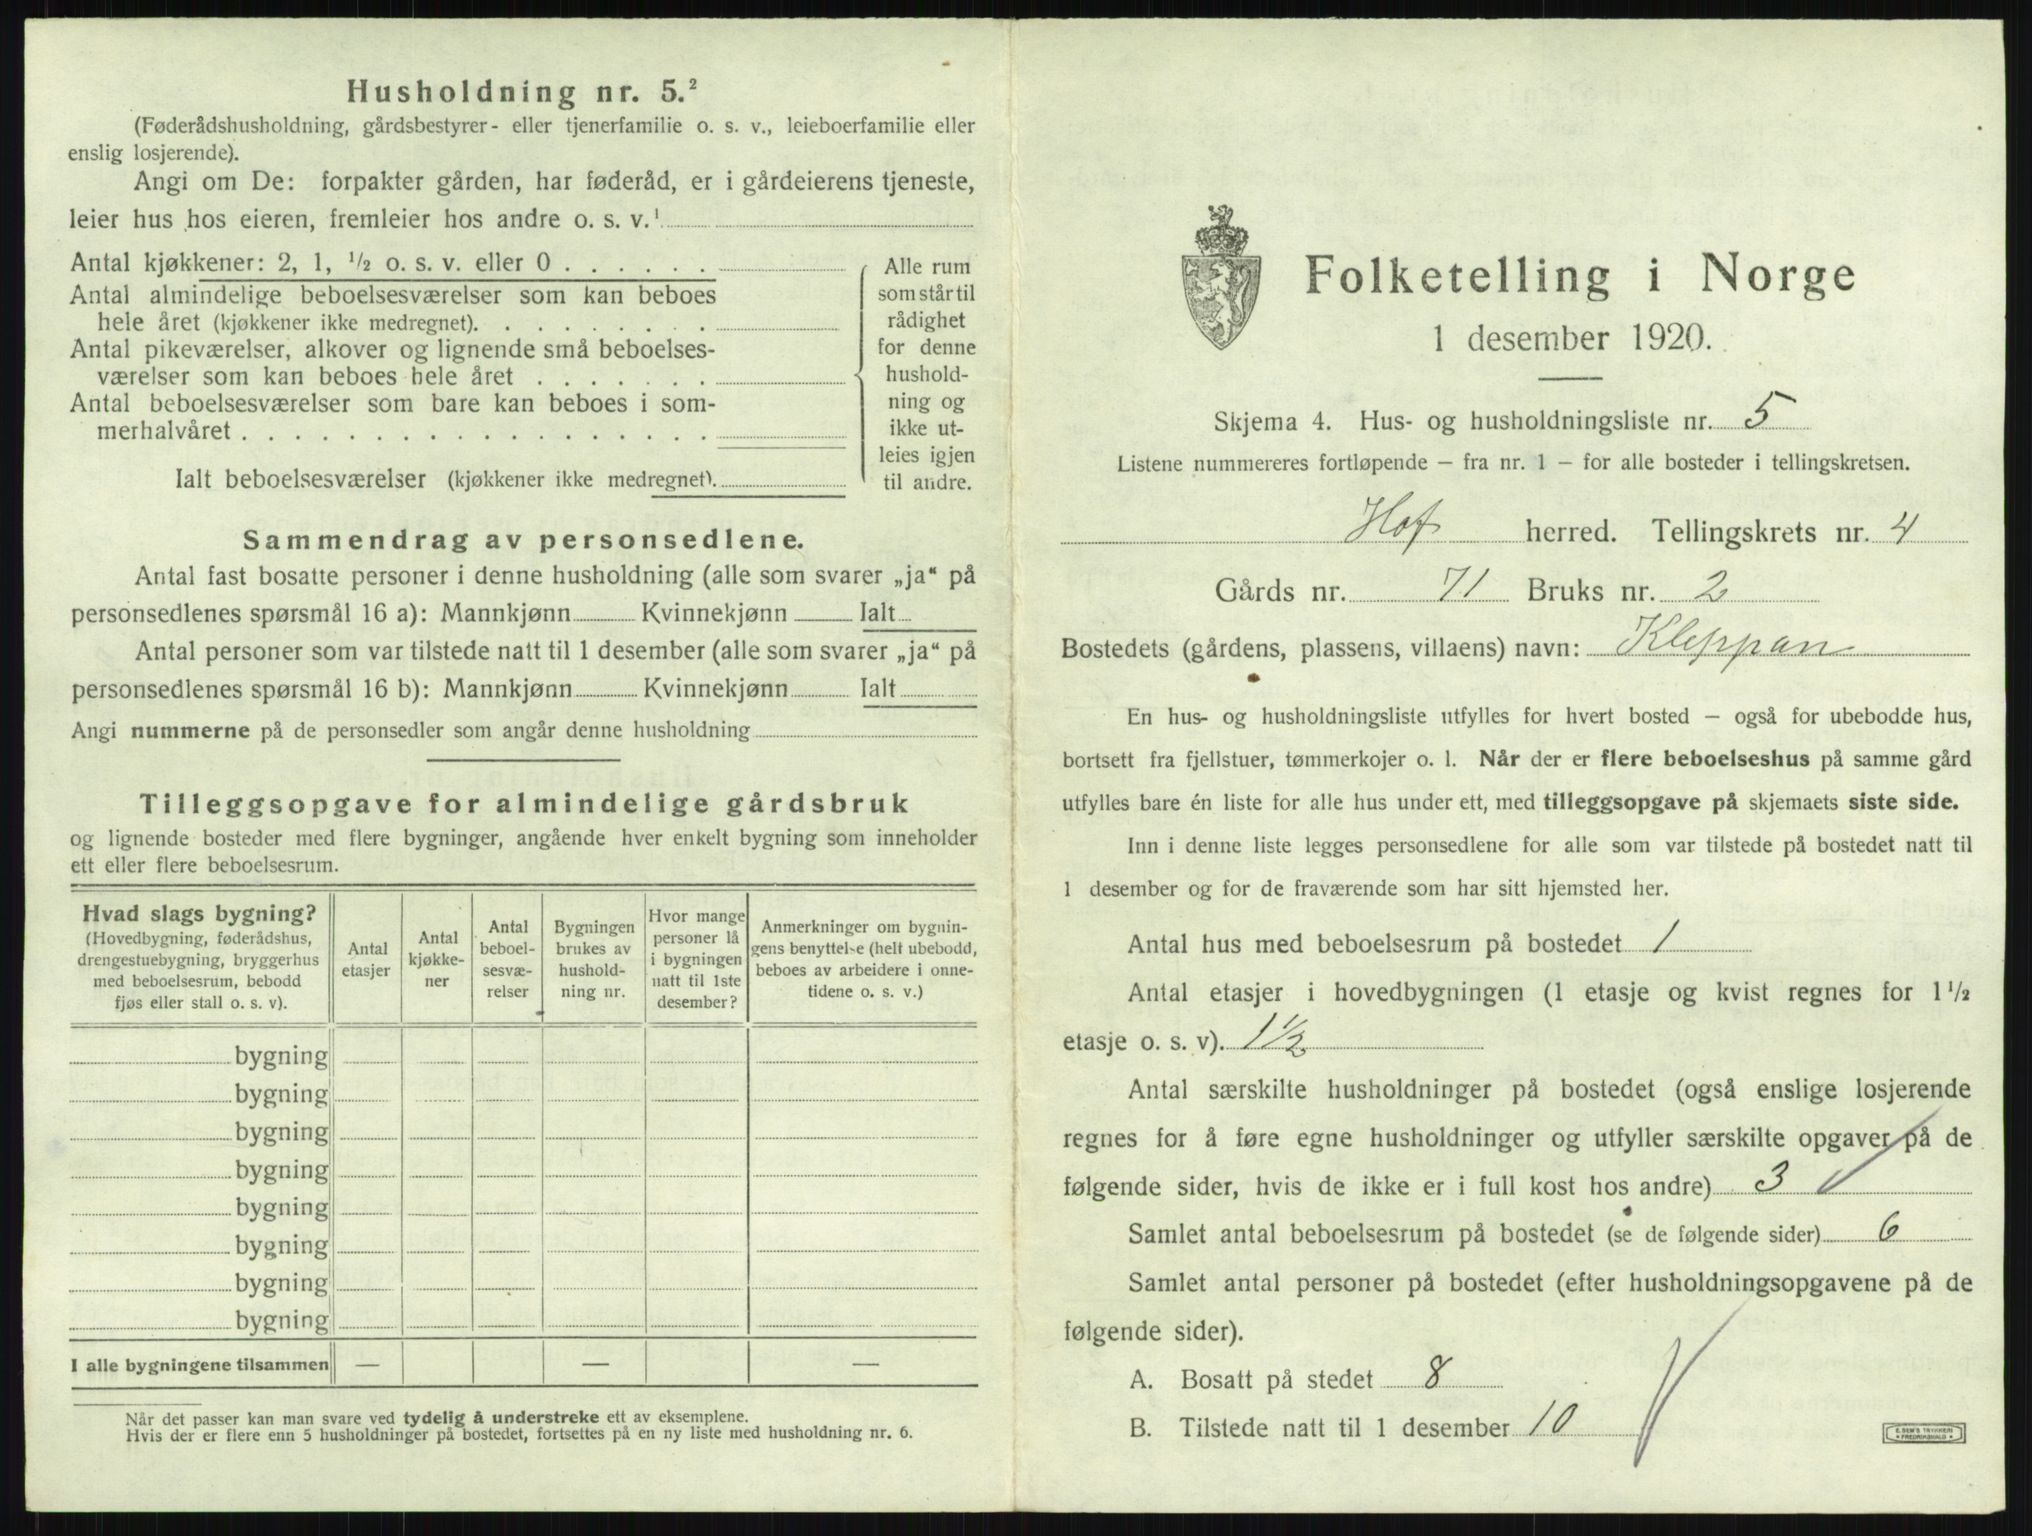 Husholdning nr. 5.²
(Føderådshusholdning, gårdsbestyrer- eller tjenerfamilie o. s. v., leieboerfamilie eller
enslig losjerende).
Angi om De: forpakter gården, har føderåd, er i gårdeierens tjeneste,
leier hus hos eieren, fremleier hos andre o. s. v.¹
Antal kjøkkener: 2, 1, ½ o. s. v. eller 0 . . . . . .
Antal almindelige beboelsesværelser som kan beboes
hele året (kjøkkener ikke medregnet). . . . . . . . .
Antal pikeværelser, alkover og lignende små beboelses-
værelser som kan beboes hele året . . . . . . .
Antal beboelsesværelser som bare kan beboes i som-
merhalvåret . . . . . . . . . . . . . . . . . .
Ialt beboelsesværelser (kjøkkener ikke medregnet).
Alle rum
som står til
rådighet
for denne
hushold-
ning og
ikke ut-
leies igjen
til andre.
Sammendrag av personsedlene.
Antal fast bosatte personer i denne husholdning (alle som svarer „ja“ på
personsedlenes spørsmål 16 a): Mannkjønn Kvinnekjønn Ialt
Antal personer som var tilstede natt til 1 desember (alle som svarer „ja“ på
personsedlenes spørsmål 16 b): Mannkjønn Kvinnekjønn Ialt
Angi nummerne på de personsedler som angår denne husholdning
Tilleggsopgave for almindelige gårdsbruk
og lignende bosteder med flere bygninger, angående hver enkelt bygning som inneholder
ett eller flere beboelsesrum.
Hvad slags bygning?
(Hovedbygning, føderådshus,
drengestuebygning, bryggerhus
med beboelsesrum, bebodd
fjøs eller stall o. s. v).
Antal
etasjer
Antal
kjøkke-
ner
Antal
beboel-
sesvæ-
relser
Bygningen
brukes av
hushold-
ning nr.
Hvor mange
personer lå
i bygningen
natt til 1ste
desember?
Anmerkninger om bygnin-
gens benyttelse (helt ubebodd,
beboes av arbeidere i onne-
tidene o. s. v.)
bygning
bygning
bygning
bygning
bygning
bygning
bygning
bygning
I alle bygningene tilsammen — — —
Når det passer kan man svare ved tydelig å understreke ett av eksemplene.
Hvis der er flere enn 5 husholdninger på bostedet, fortsettes på en ny liste med husholdning nr. 6.
Folketelling i Norge
1 desember 1920.
Skjema 4. Hus- og husholdningsliste nr. 5
Listene nummereres fortløpende – fra nr. 1 – for alle bosteder i tellingskretsen.
Hof herred. Tellingskrets nr. 4
Gårds nr. 71 Bruks nr. 2
Bostedets (gårdens, plassens, villaens) navn: Kleppan
En hus- og husholdningsliste utfylles for hvert bosted – også for ubebodde hus,
bortsett fra fjellstuer, tømmerkojer o. l. Når der er flere beboelseshus på samme gård
utfylles bare én liste for alle hus under ett, med tilleggsopgave på skjemaets siste side.
Inn i denne liste legges personsedlene for alle som var tilstede på bostedet natt til
1 desember og for de fraværende som har sitt hjemsted her.
Antal hus med beboelsesrum på bostedet 1
Antal etasjer i hovedbygningen (1 etasje og kvist regnes for 1½
etasje o. s. v). 1½
Antal særskilte husholdninger på bostedet (også enslige losjerende
regnes for å føre egne husholdninger og utfyller særskilte opgaver på de
følgende sider, hvis de ikke er i full kost hos andre) 3
Samlet antal beboelsesrum på bostedet (se de følgende sider) 6
Samlet antal personer på bostedet (efter husholdningsopgavene på de
følgende sider).
A. Bosatt på stedet 8
B. Tilstede natt til 1 desember 10
E. SEM'S TRYKKERI
FREDRIKSHALD